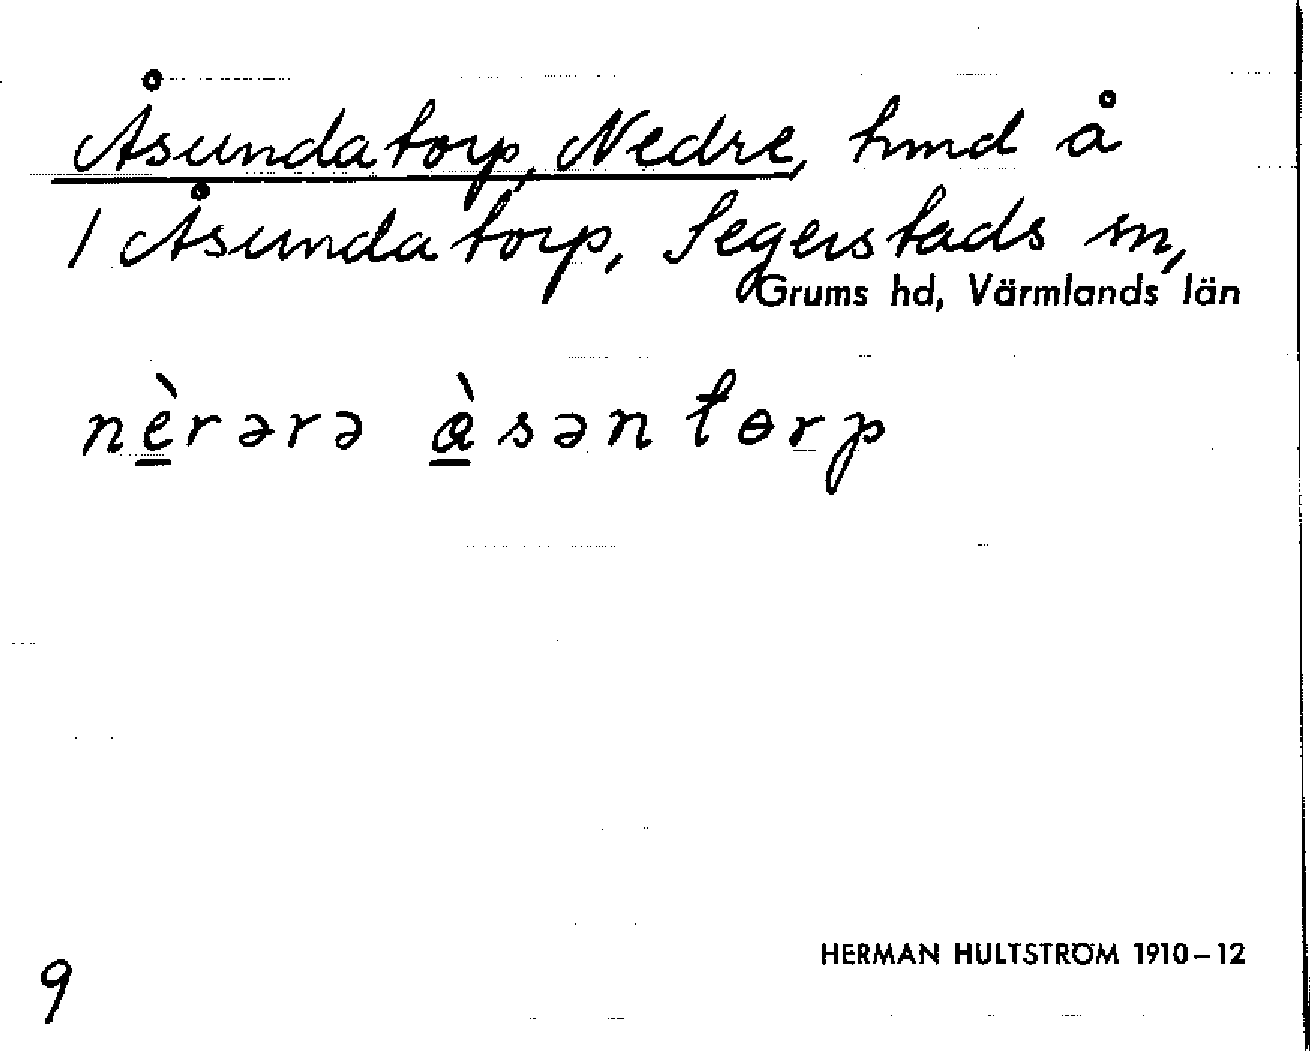 Åsundatorp, Nedre, hmd å
1 Åsundatorp, Segerstads sn,
Grums hd, Värmlands län
nè̱rərə å̱̀səntɵrp
HERMAN HULTSTRÖM 1910–12
9